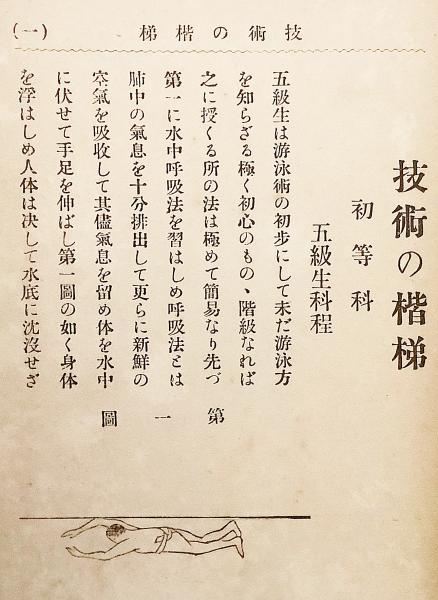 技術の楷梯 (一)
技術の楷梯
初等科
五級生科程
五級生は游泳術の初歩にして未だ游泳方
を知らざる極く初心のもの、階級なれば
之に授くる所の法は極めて簡易なり先づ
第一に水中呼吸法を習はしめ呼吸法とは
肺中の氣息を十分排出して更らに新鮮の
空氣を吸收して其儘氣息を留め体を水中
に伏せて手足を伸ばし第一圖の如く身体
を浮はしめ人体は决して水底に沈沒せざ
第一圖